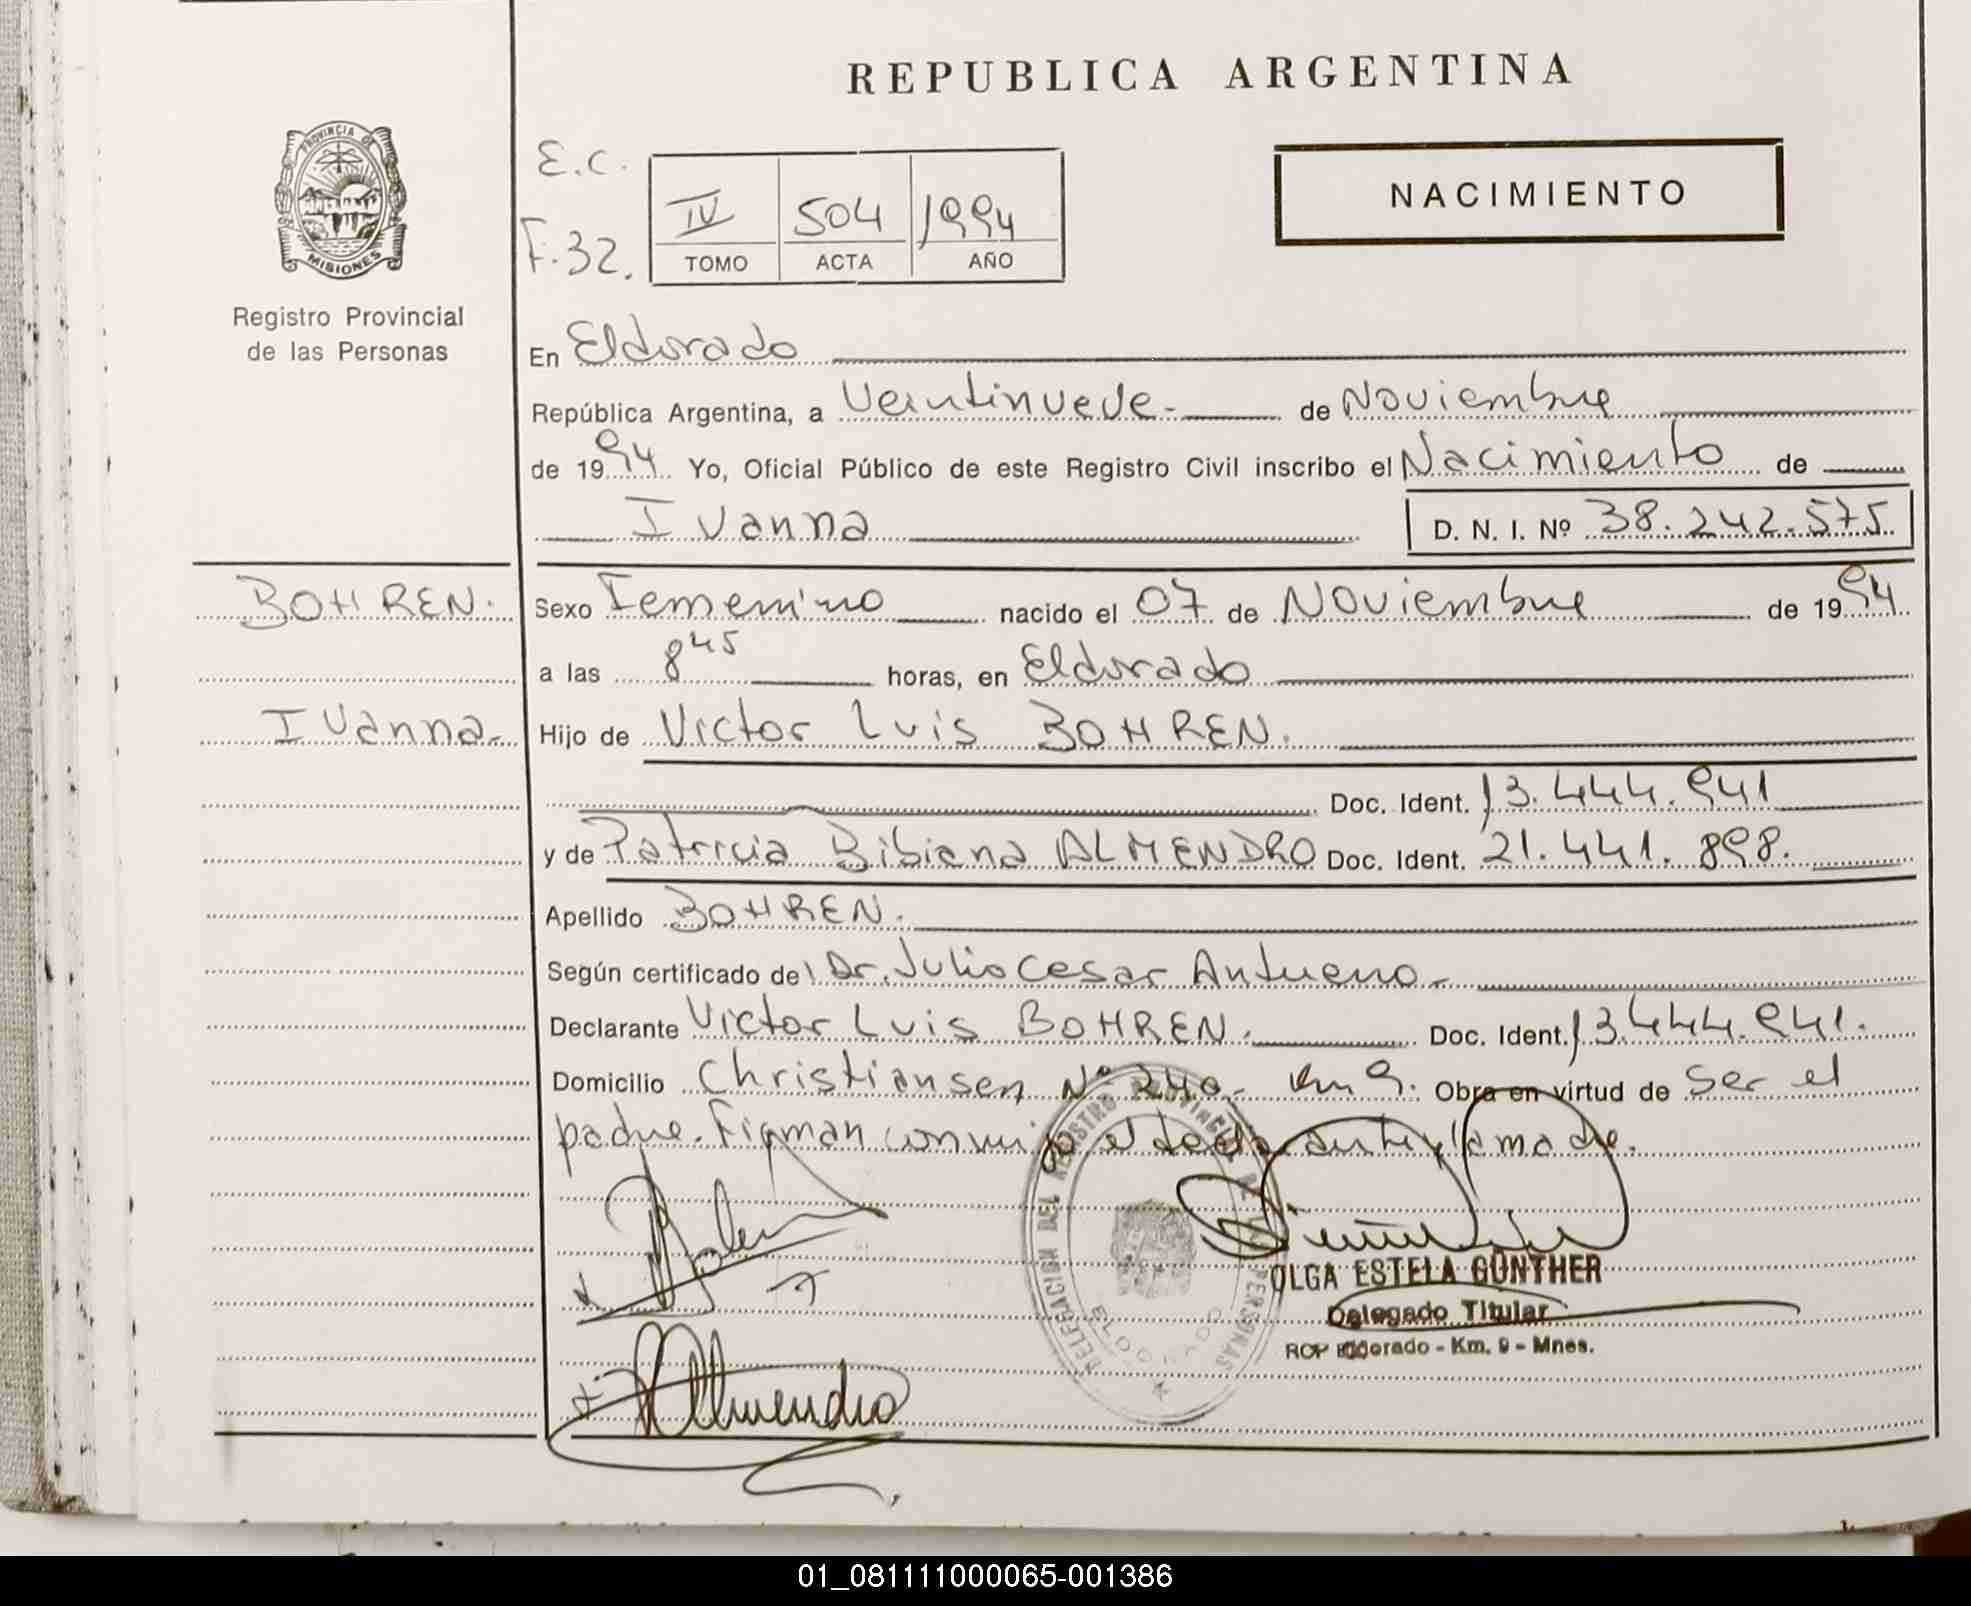 REPUBLICA ARGENTINA
PROVINCIA DE
MISIONES
Registro Provincial
de las Personas
E.C.
F.32.
IV 504 1994
TOMO ACTA AÑO
NACIMIENTO
En Eldorado
República Argentina, a Veintinueve de Noviembre
de 1994 Yo, Oficial Público de este Registro Civil inscribo el Nacimiento de
Ivanna D. N. I. Nº 38.242.575
BOHREN. Sexo Femenino nacido el 07 de Noviembre de 1994
a las 8 45 horas, en Eldorado
Ivanna Hijo de Victor Luis BOHREN.
Doc. Ident. 13.444.941
y de Patricia Bibiana ALMENDRO Doc. Ident. 21.441.898.
Apellido BOHREN.
Según certificado del Dr. Julio Cesar Antueno
Declarante Victor Luis BOHREN. Doc. Ident. 13.444.941.
Domicilio Christiansen Nº 240. Km 9. Obra en virtud de Ser el
padre. Firman conmigo el declarante y la madre.
Almendro
DELEGACION DEL REGISTRO PROVINCIAL DE LAS PERSONAS
ELDORADO
OLGA ESTELA GÜNTHER
Delegado Titular
RCP Eldorado - Km. 9 - Mnes.
01_081111000065-001386